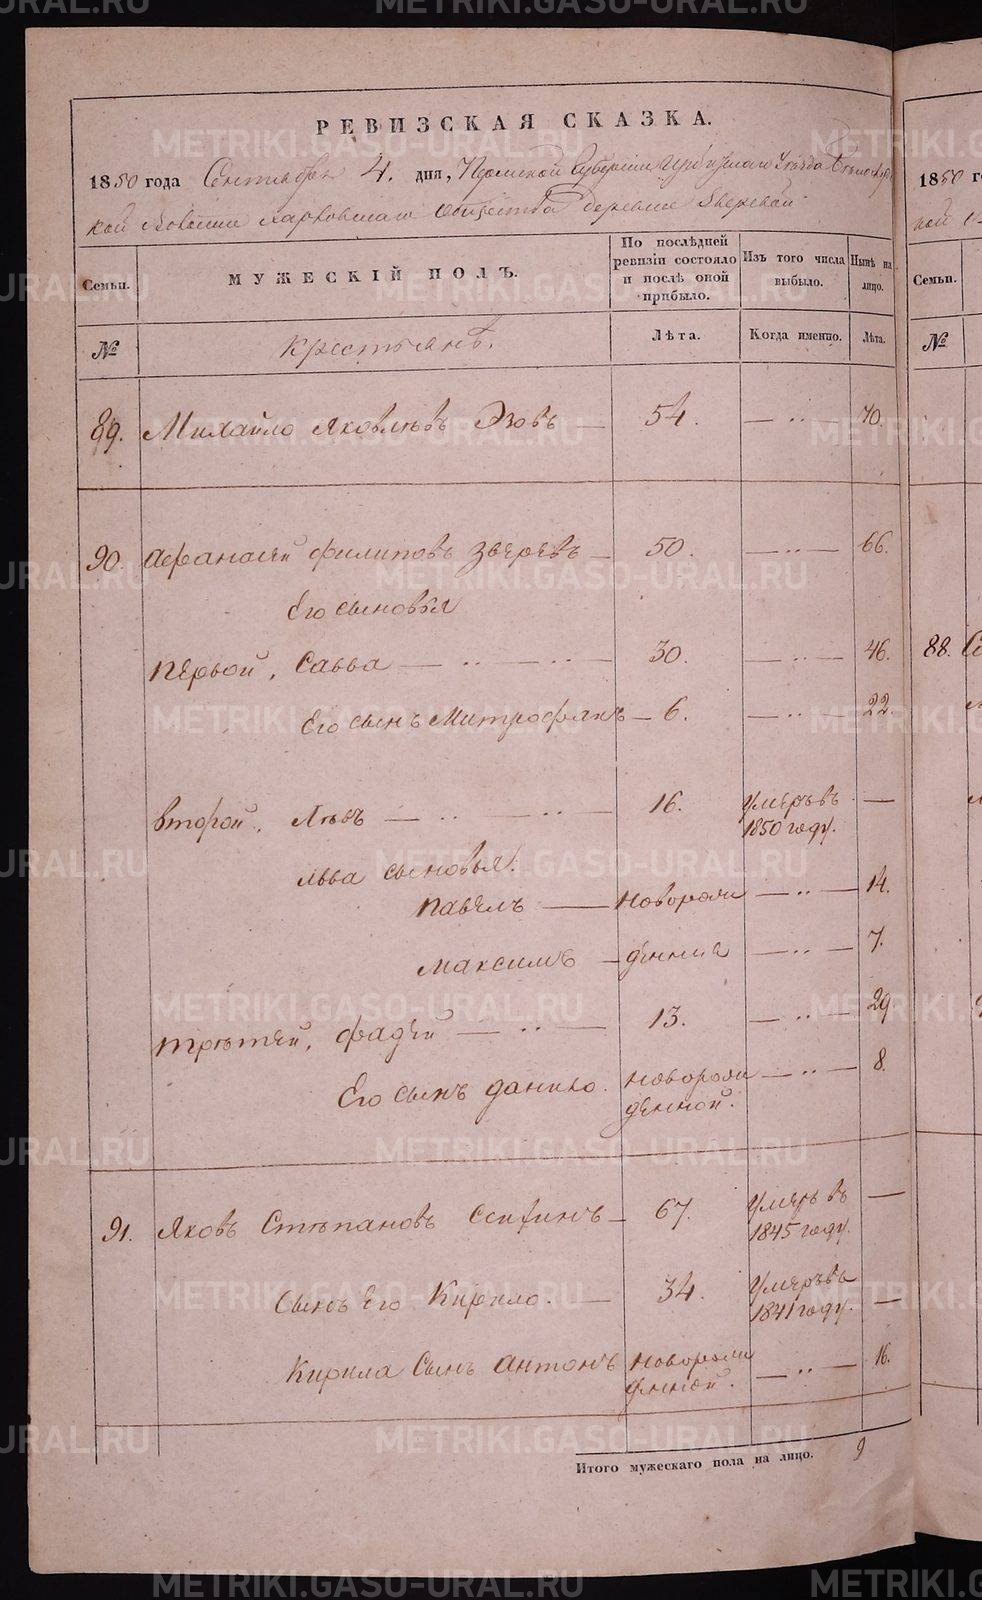 РЕВИЗСКАЯ СКАЗКА.
1850 года Сентября 4. дня, Пермской Губернии Ирбитскаго Уезда
кой Волости Харловскаго Общества деревни Зверевой
Семьи.
МУЖЕСКІЙ ПОЛЪ.
По послѣдней ревизіи состояло и послѣ оной прибыло.
Изъ того числа выбыло.
Нынѣ на лицо.
№
Крестьянъ.
Лѣта.
Когда именно.
Лѣта.
89. Михайло Яковлевъ — 54. — ·· — 70.
90. Афанасей Филиповъ Зверевъ — 50. — ·· — 66.
Его сыновья
Первой, Савва — ·· — ·· — 30. — ·· — 46.
Его сынъ Митрофанъ — 6. — ·· — 22.
Второй, Левъ — ·· — ·· — 16. Умеръ въ —
1850 году.
Льва сыновья:
Павелъ — Новорож — ·· — 14.
Максимъ — денные — ·· — 7.
Третей, Фадей — ·· — 13. — ·· — 29.
Его сынъ Данило. Новорож — ·· — 8.
денной.
91. Яковъ Степановъ — 67. Умеръ въ —
1845 году.
Сынъ Его Кирило. — 34. Умеръ въ —
1841 году.
Кирила Сынъ Антонъ Новорож — ·· — 16.
денной.
Итого мужескаго пола на лицо. 9
1850 г
Семьи.
№
88.
METRIKI.GASO-URAL.RU